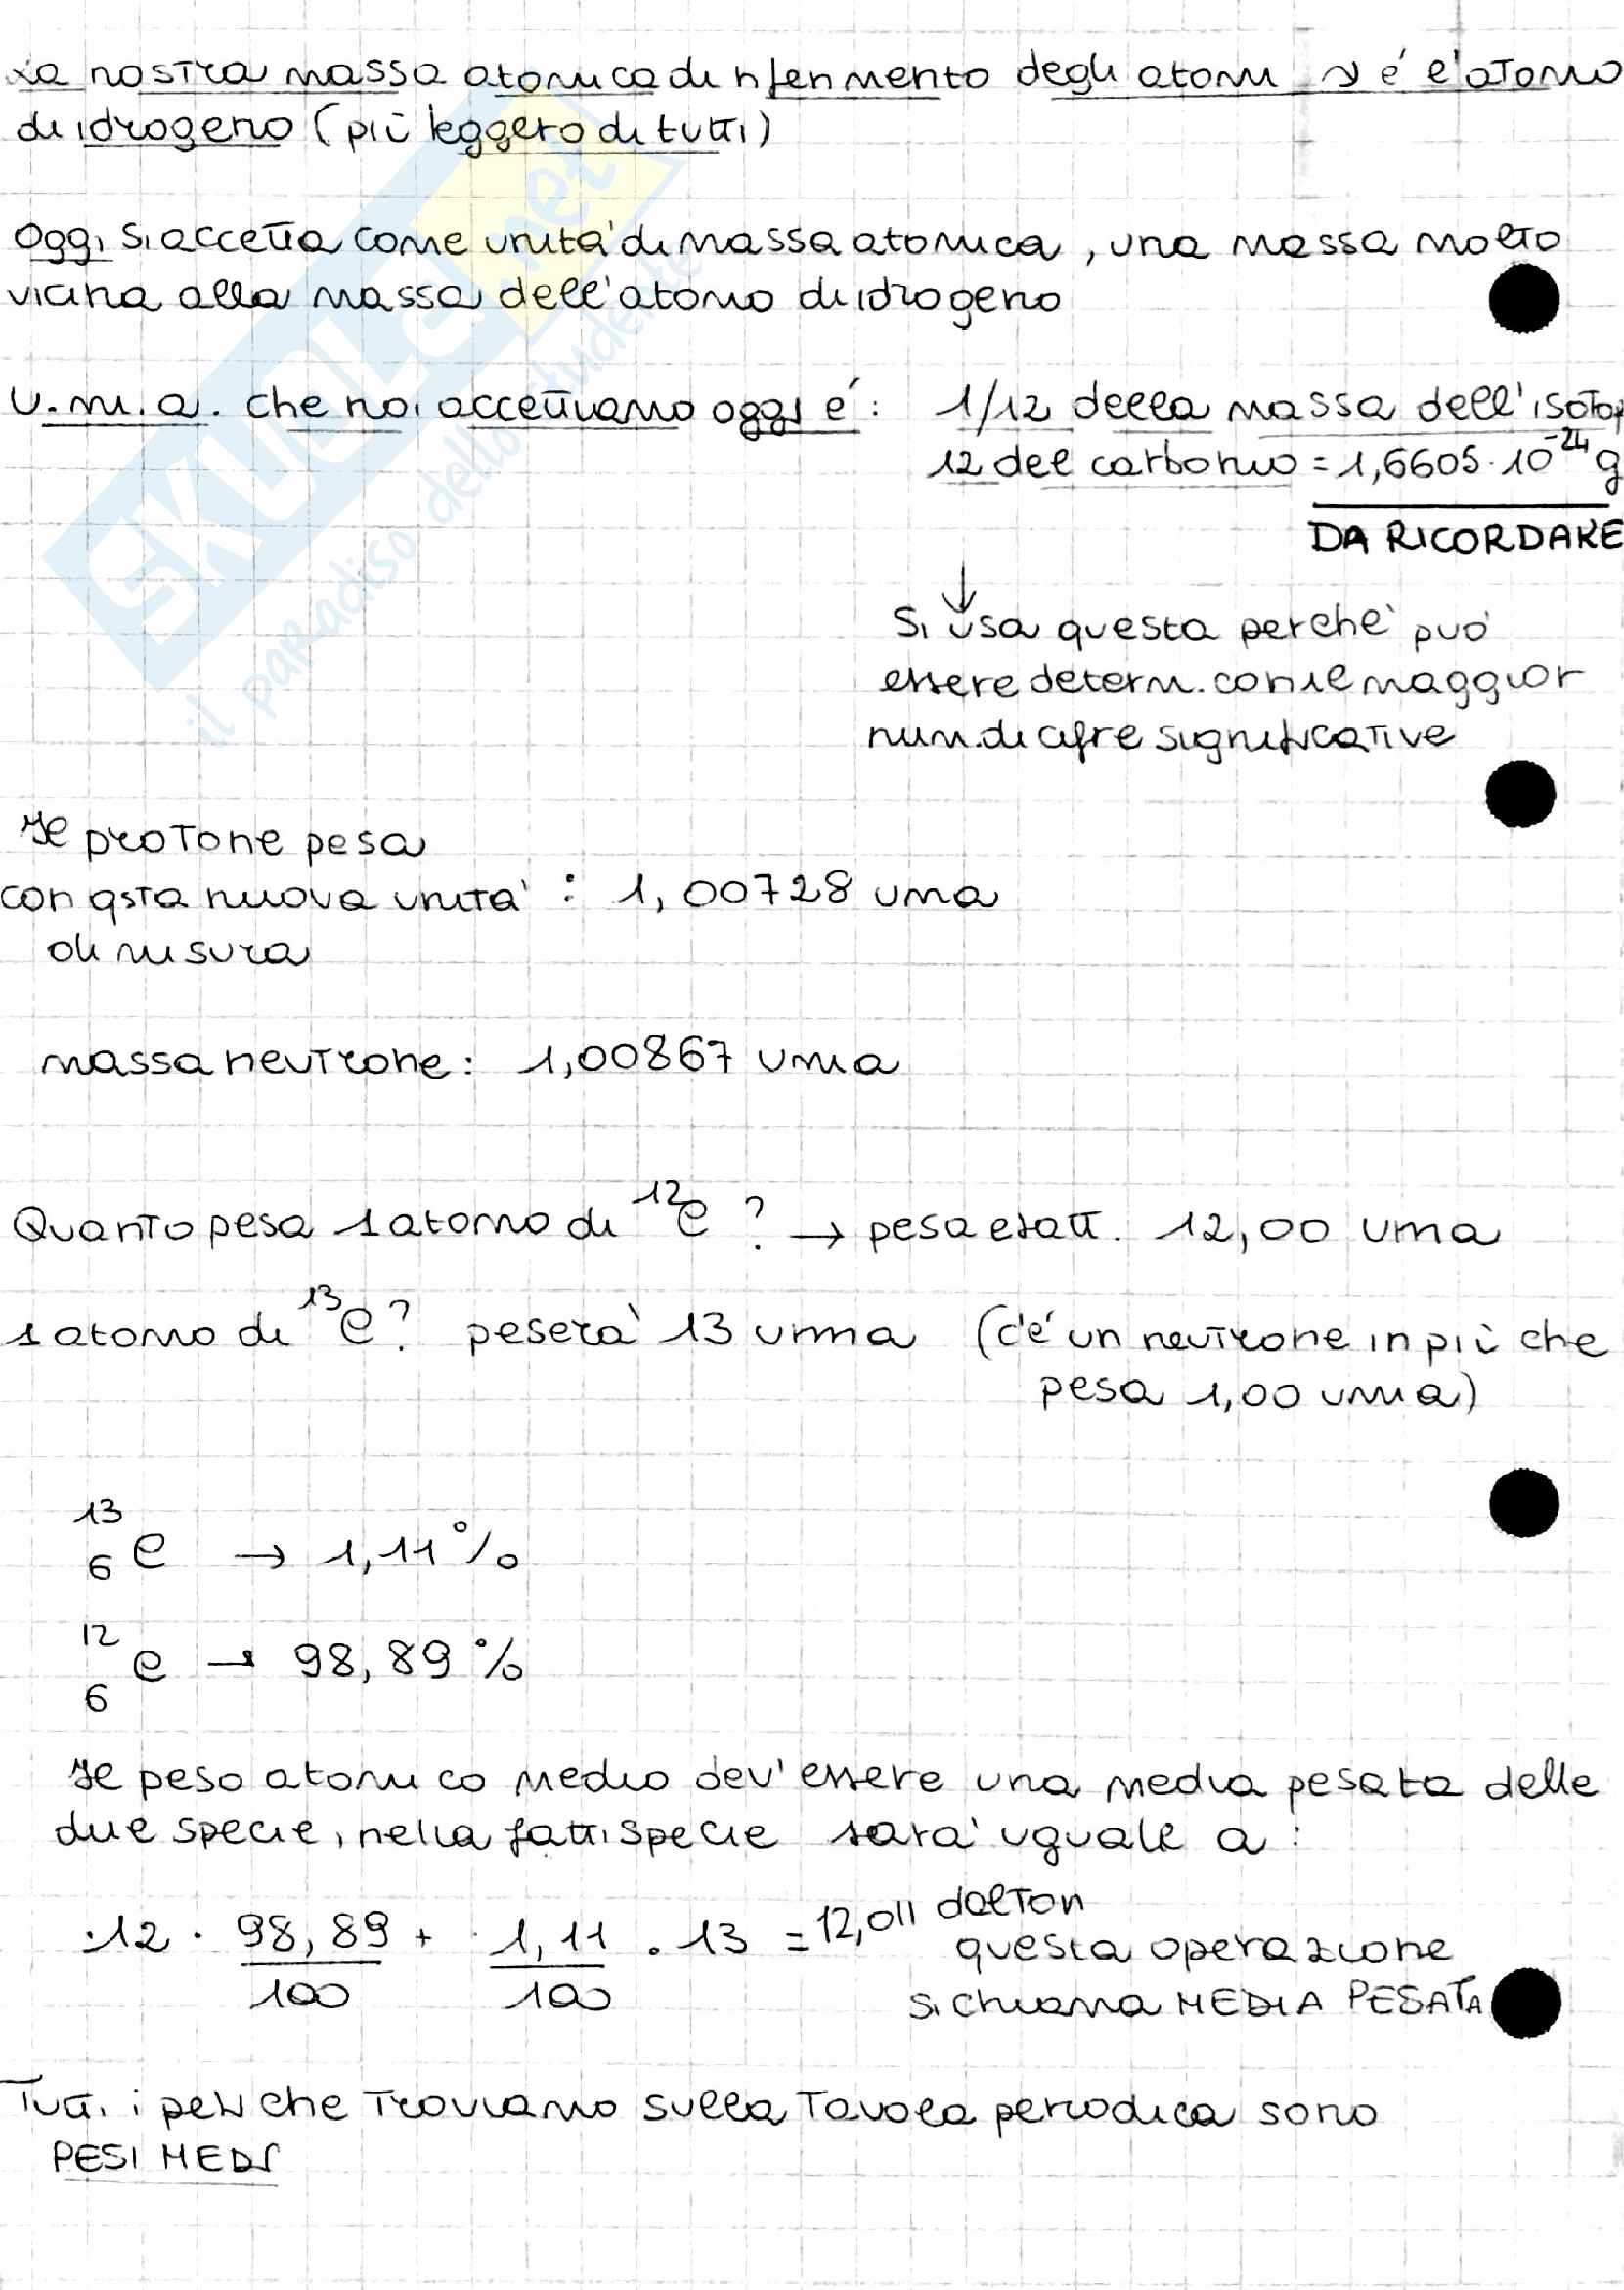 La nostra massa atomica di riferimento degli atomi → é l'atomo
di idrogeno (più leggero di tutti)
Oggi si accetta come unità di massa atomica, una massa molto
vicina alla massa dell'atomo di idrogeno
U.m.a. che noi accettiamo oggi é: 1/12 della massa dell'isotop
12 del carbonio = 1,6605·10⁻²⁴ g
DA RICORDARE
↓
Si usa questa perchè può
essere determ. con il maggior
num. di cifre significative
Il protone pesa
con qsta nuova unità : 1,00728 uma
di misura
massa neutrone: 1,00867 uma
Quanto pesa 1 atomo di ¹²C ? → pesa esatt. 12,00 uma
1 atomo di ¹³C? peserà 13 uma (c'é un neutrone in più che
pesa 1,00 uma)
¹³₆C → 1,11 %
¹²₆C → 98,89 %
Il peso atomico medio dev'essere una media pesata delle
due specie, nella fattispecie sarà uguale a:
12 · 98,89/100 + 1,11/100 · 13 = 12,011 dalton
questa operazione
si chiama MEDIA PESATA
Tutti i pesi che troviamo sulla Tavola periodica sono
PESI MEDI
SKUOLA.net
il paradiso dello studente